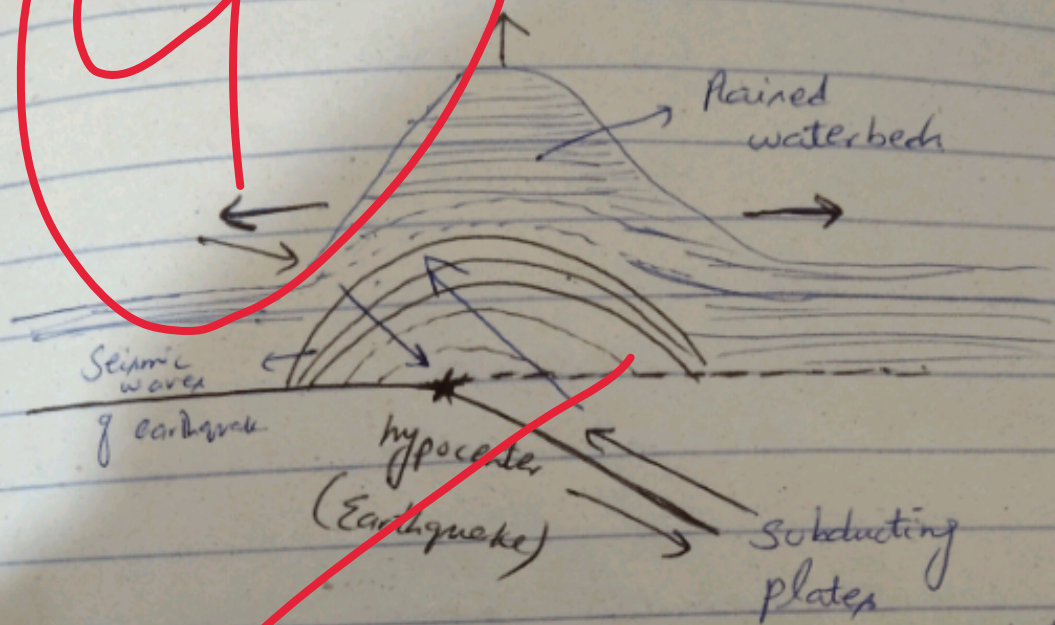 Raised
waterbed
Seismic
waves
of earthquake
hypocenter
(Earthquake)
subducting
plates